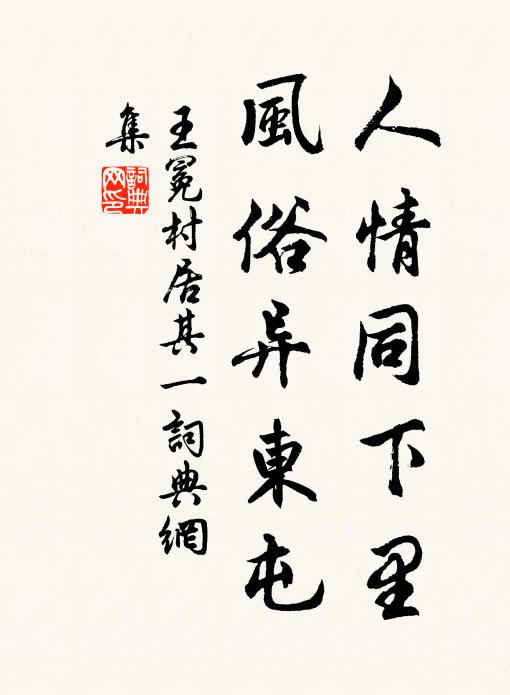 人情同下里
風俗异東屯
王冕村居其一詞典網
集
詞典網印